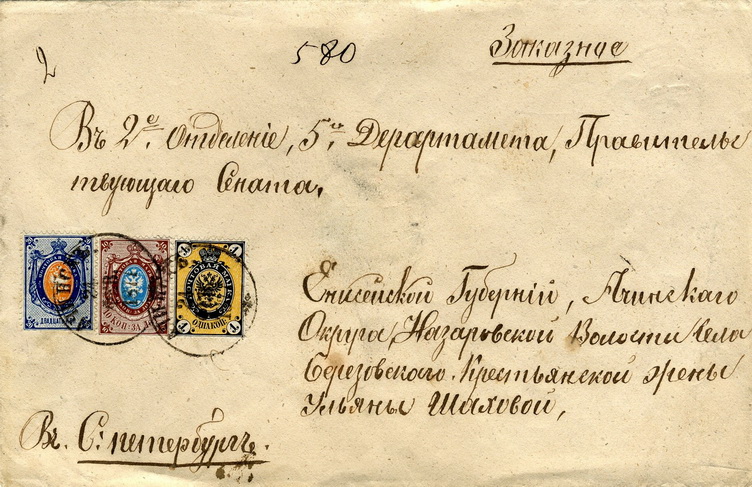 2
580
Заказное
Въ 2е. Отделеніе, 5го. Департамета, Правительс
твующаго Сената.
ДВАДЦАТЬ
10 КОП: ЗА ЛОТЪ
ПОЧТОВАЯ МАРКА
ОДНА КОП.
1
1
Енисейской Губерніи, Ачинскаго
Округа, Назаровской Волости Села
Березовскаго. Крестьянской жены
Ульяны Шаховой,
Въ. С: петербургъ.